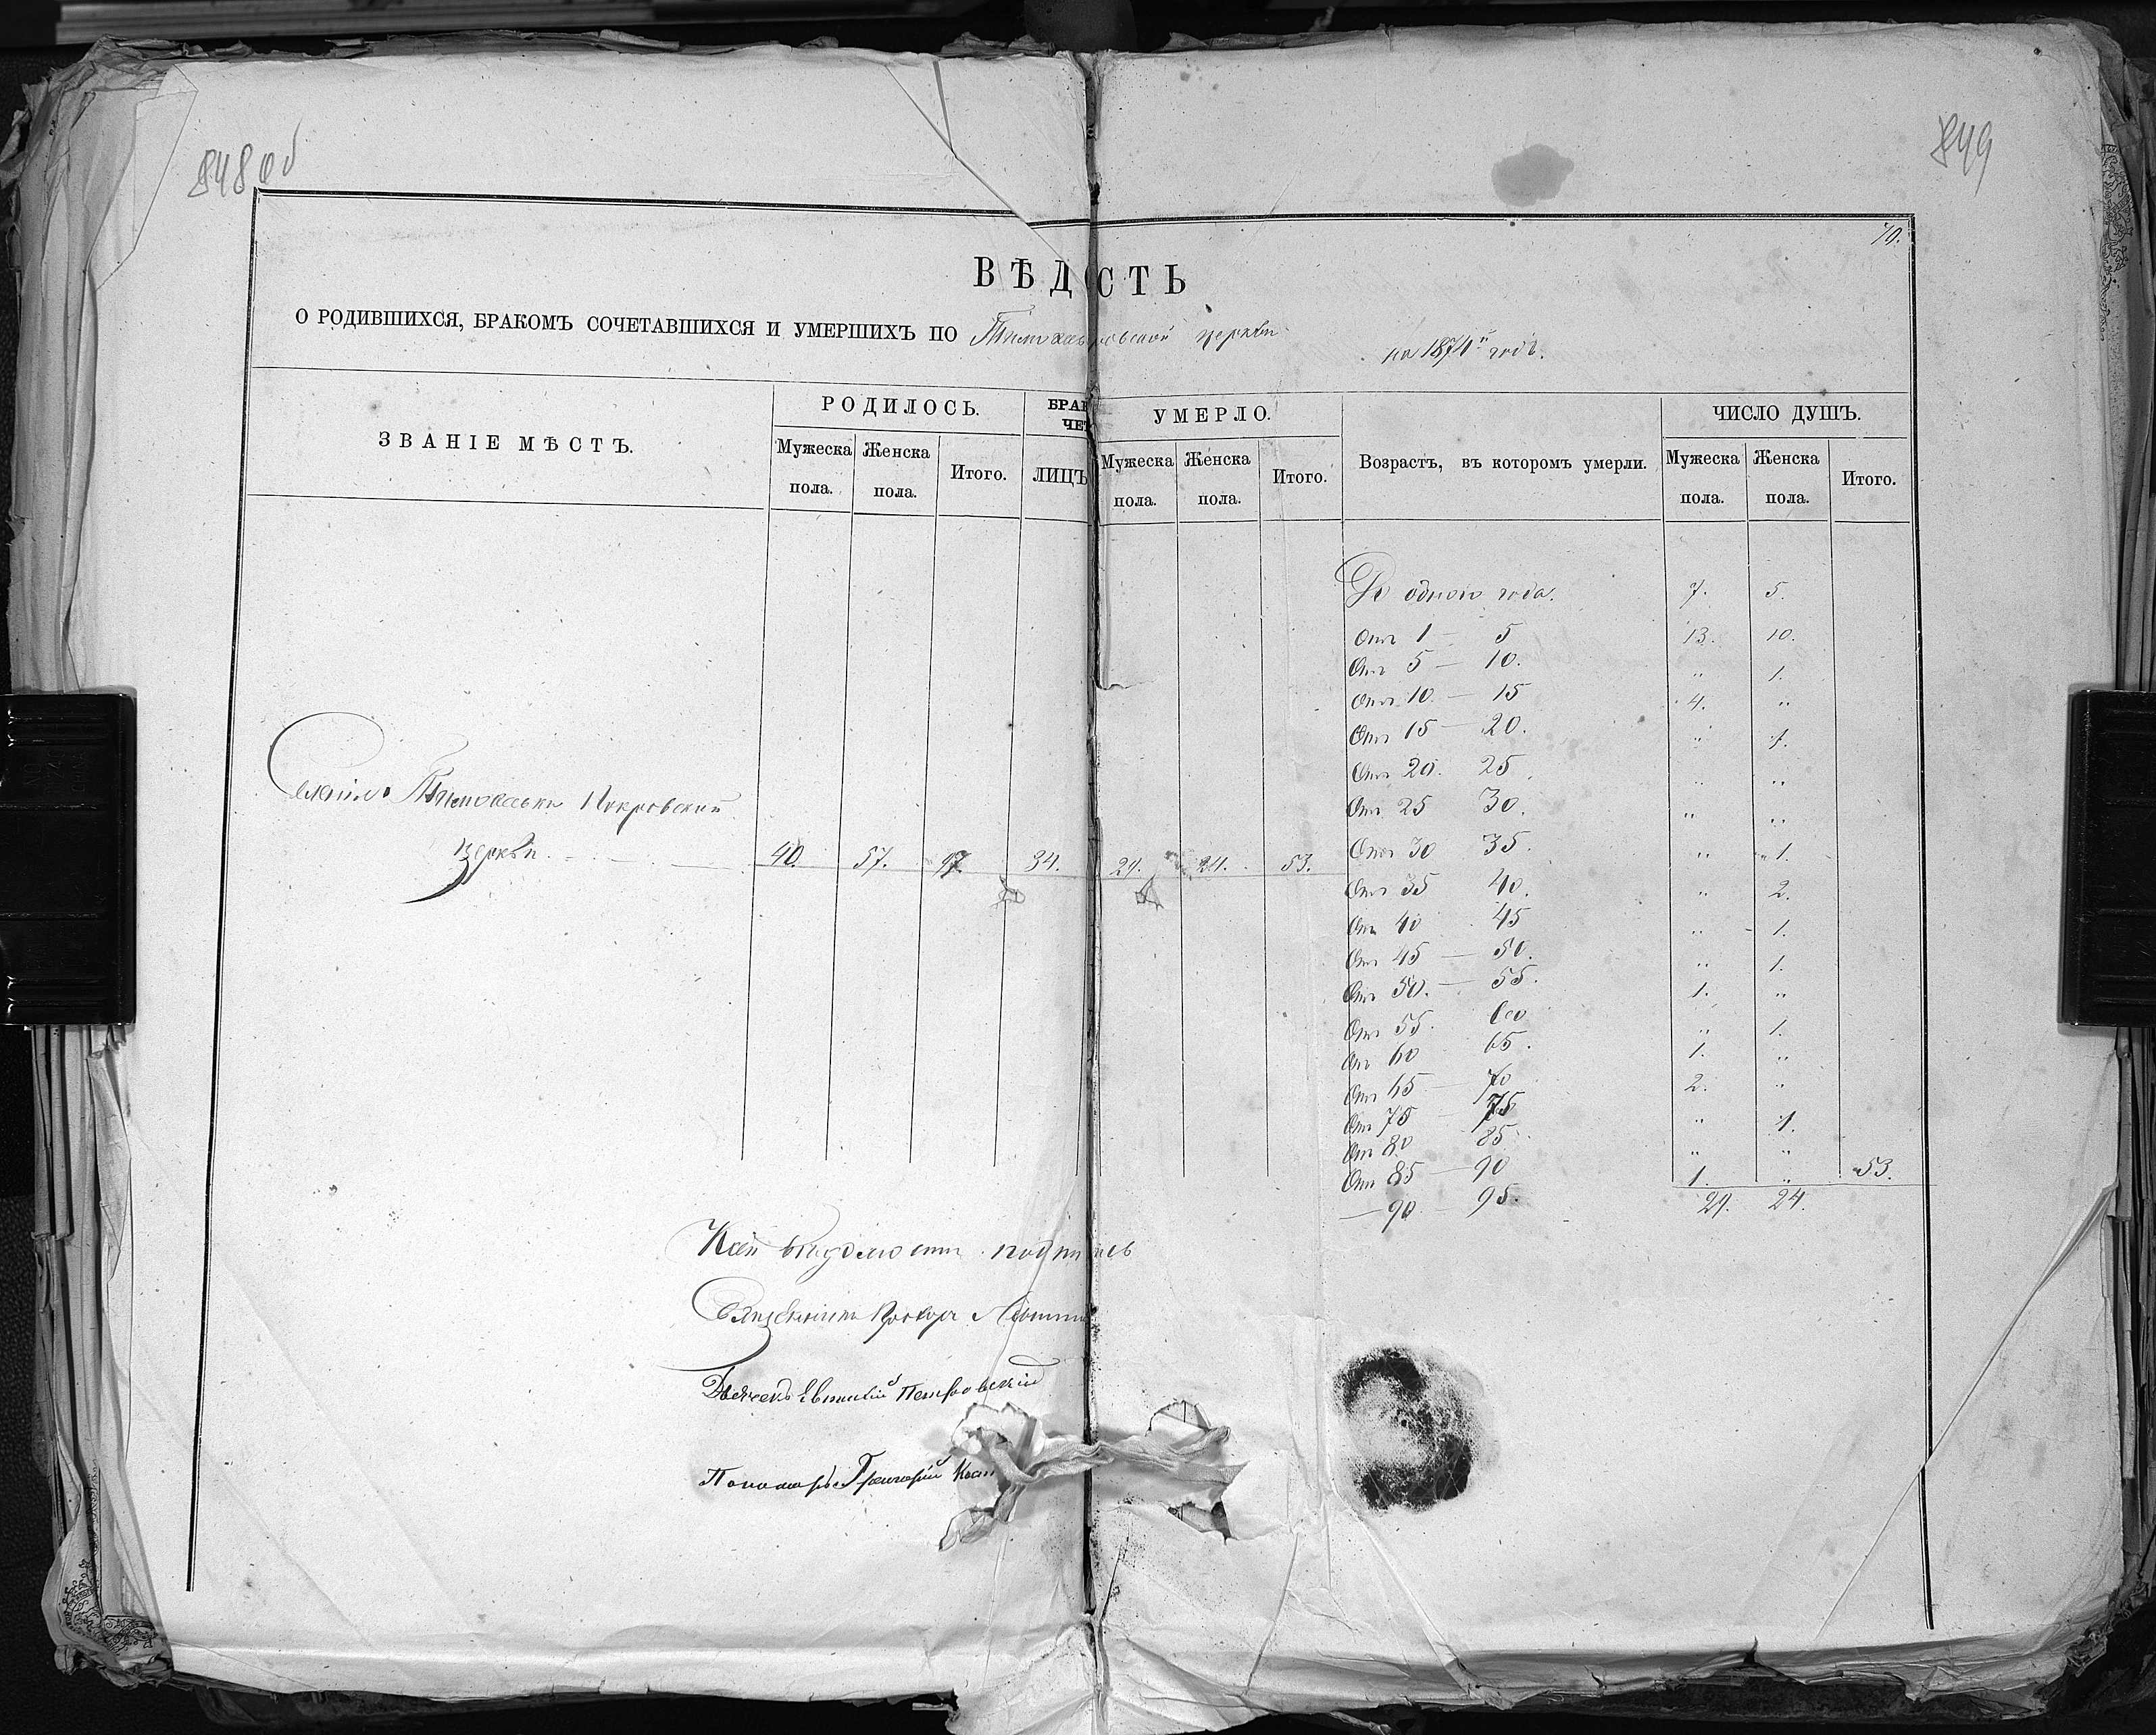 848 об
849
70.
ВѢДОСТЬ
О РОДИВШИХСЯ, БРАКОМЪ СОЧЕТАВШИХСЯ И УМЕРШИХЪ ПО церкви на 1874й годъ.
ЗВАНІЕ МѢСТЪ.
РОДИЛОСЬ.
Мужеска пола.
Женска пола.
Итого.
БРАК
ЧЕТ
ЛИЦЪ
УМЕРЛО.
Мужеска пола.
Женска пола.
Итого.
Возрастъ, въ которомъ умерли.
ЧИСЛО ДУШЪ.
Мужеска пола.
Женска пола.
Итого.
Покровской
церкви. 40. 57. 97. 34. 29. 24. 53.
До одного года. 7. 5.
Отъ 1 — 5 13. 10.
Отъ 5 — 10. " 1.
Отъ 10 — 15 4. "
Отъ 15 — 20. " 1.
Отъ 20. 25. " "
Отъ 25 30. " "
Отъ 30 35. " 1.
Отъ 35 40. " 2.
Отъ 40 45 " 1.
Отъ 45 — 50. " 1.
Отъ 50. — 55. 1. "
Отъ 55. 60 " 1.
Отъ 60 65. 1. "
Отъ 65 — 70 2. "
Отъ 70 — 75 " 1.
Отъ 80 85. " "
Отъ 85 — 90 1. " 53.
— 90 — 95. 29. 24.
Священникъ
Дьячекъ Евтихій Петровскій
Пономарь Григорій